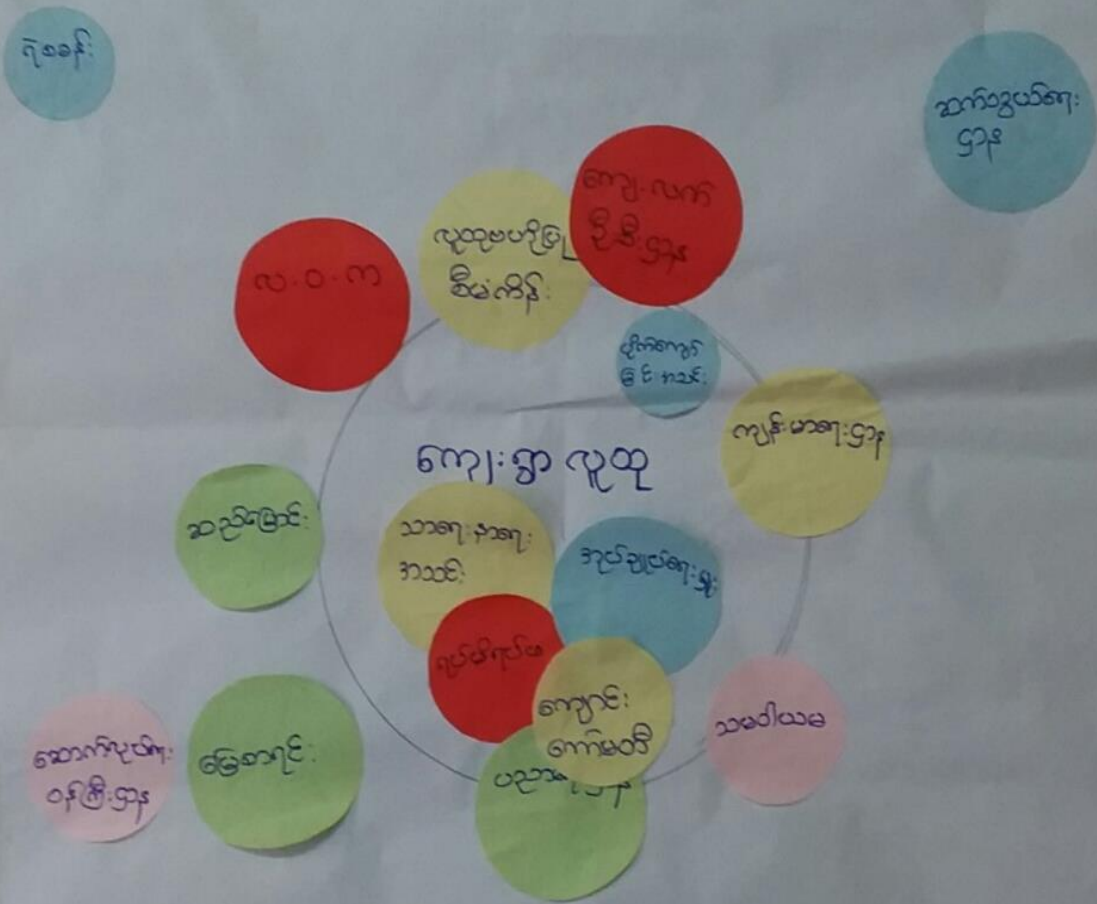 ရဲစခန်း
ဆက်သွယ်ရေး
ဌာန
ကျေး.လက်
ဦး.စီး.ဌာန
လူထုဗဟိုပြု
စီမံကိန်း
လ.ဝ.က
မြင်းအသင်း
ကျန်းမာရေးဌာန
ကျေးရွာ လူထု
ဆည်မြောင်း
သာရေးနာရေး
အသင်း
အုပ်ချုပ်ရေးမှူး
ရပ်မိရပ်ဖ
ကျောင်း
ကော်မတီ
သမဝါယမ
ဆောက်လုပ်ရေး
ဝန်ကြီးဌာန
မြေစာရင်း
ပညာရေးဌာန